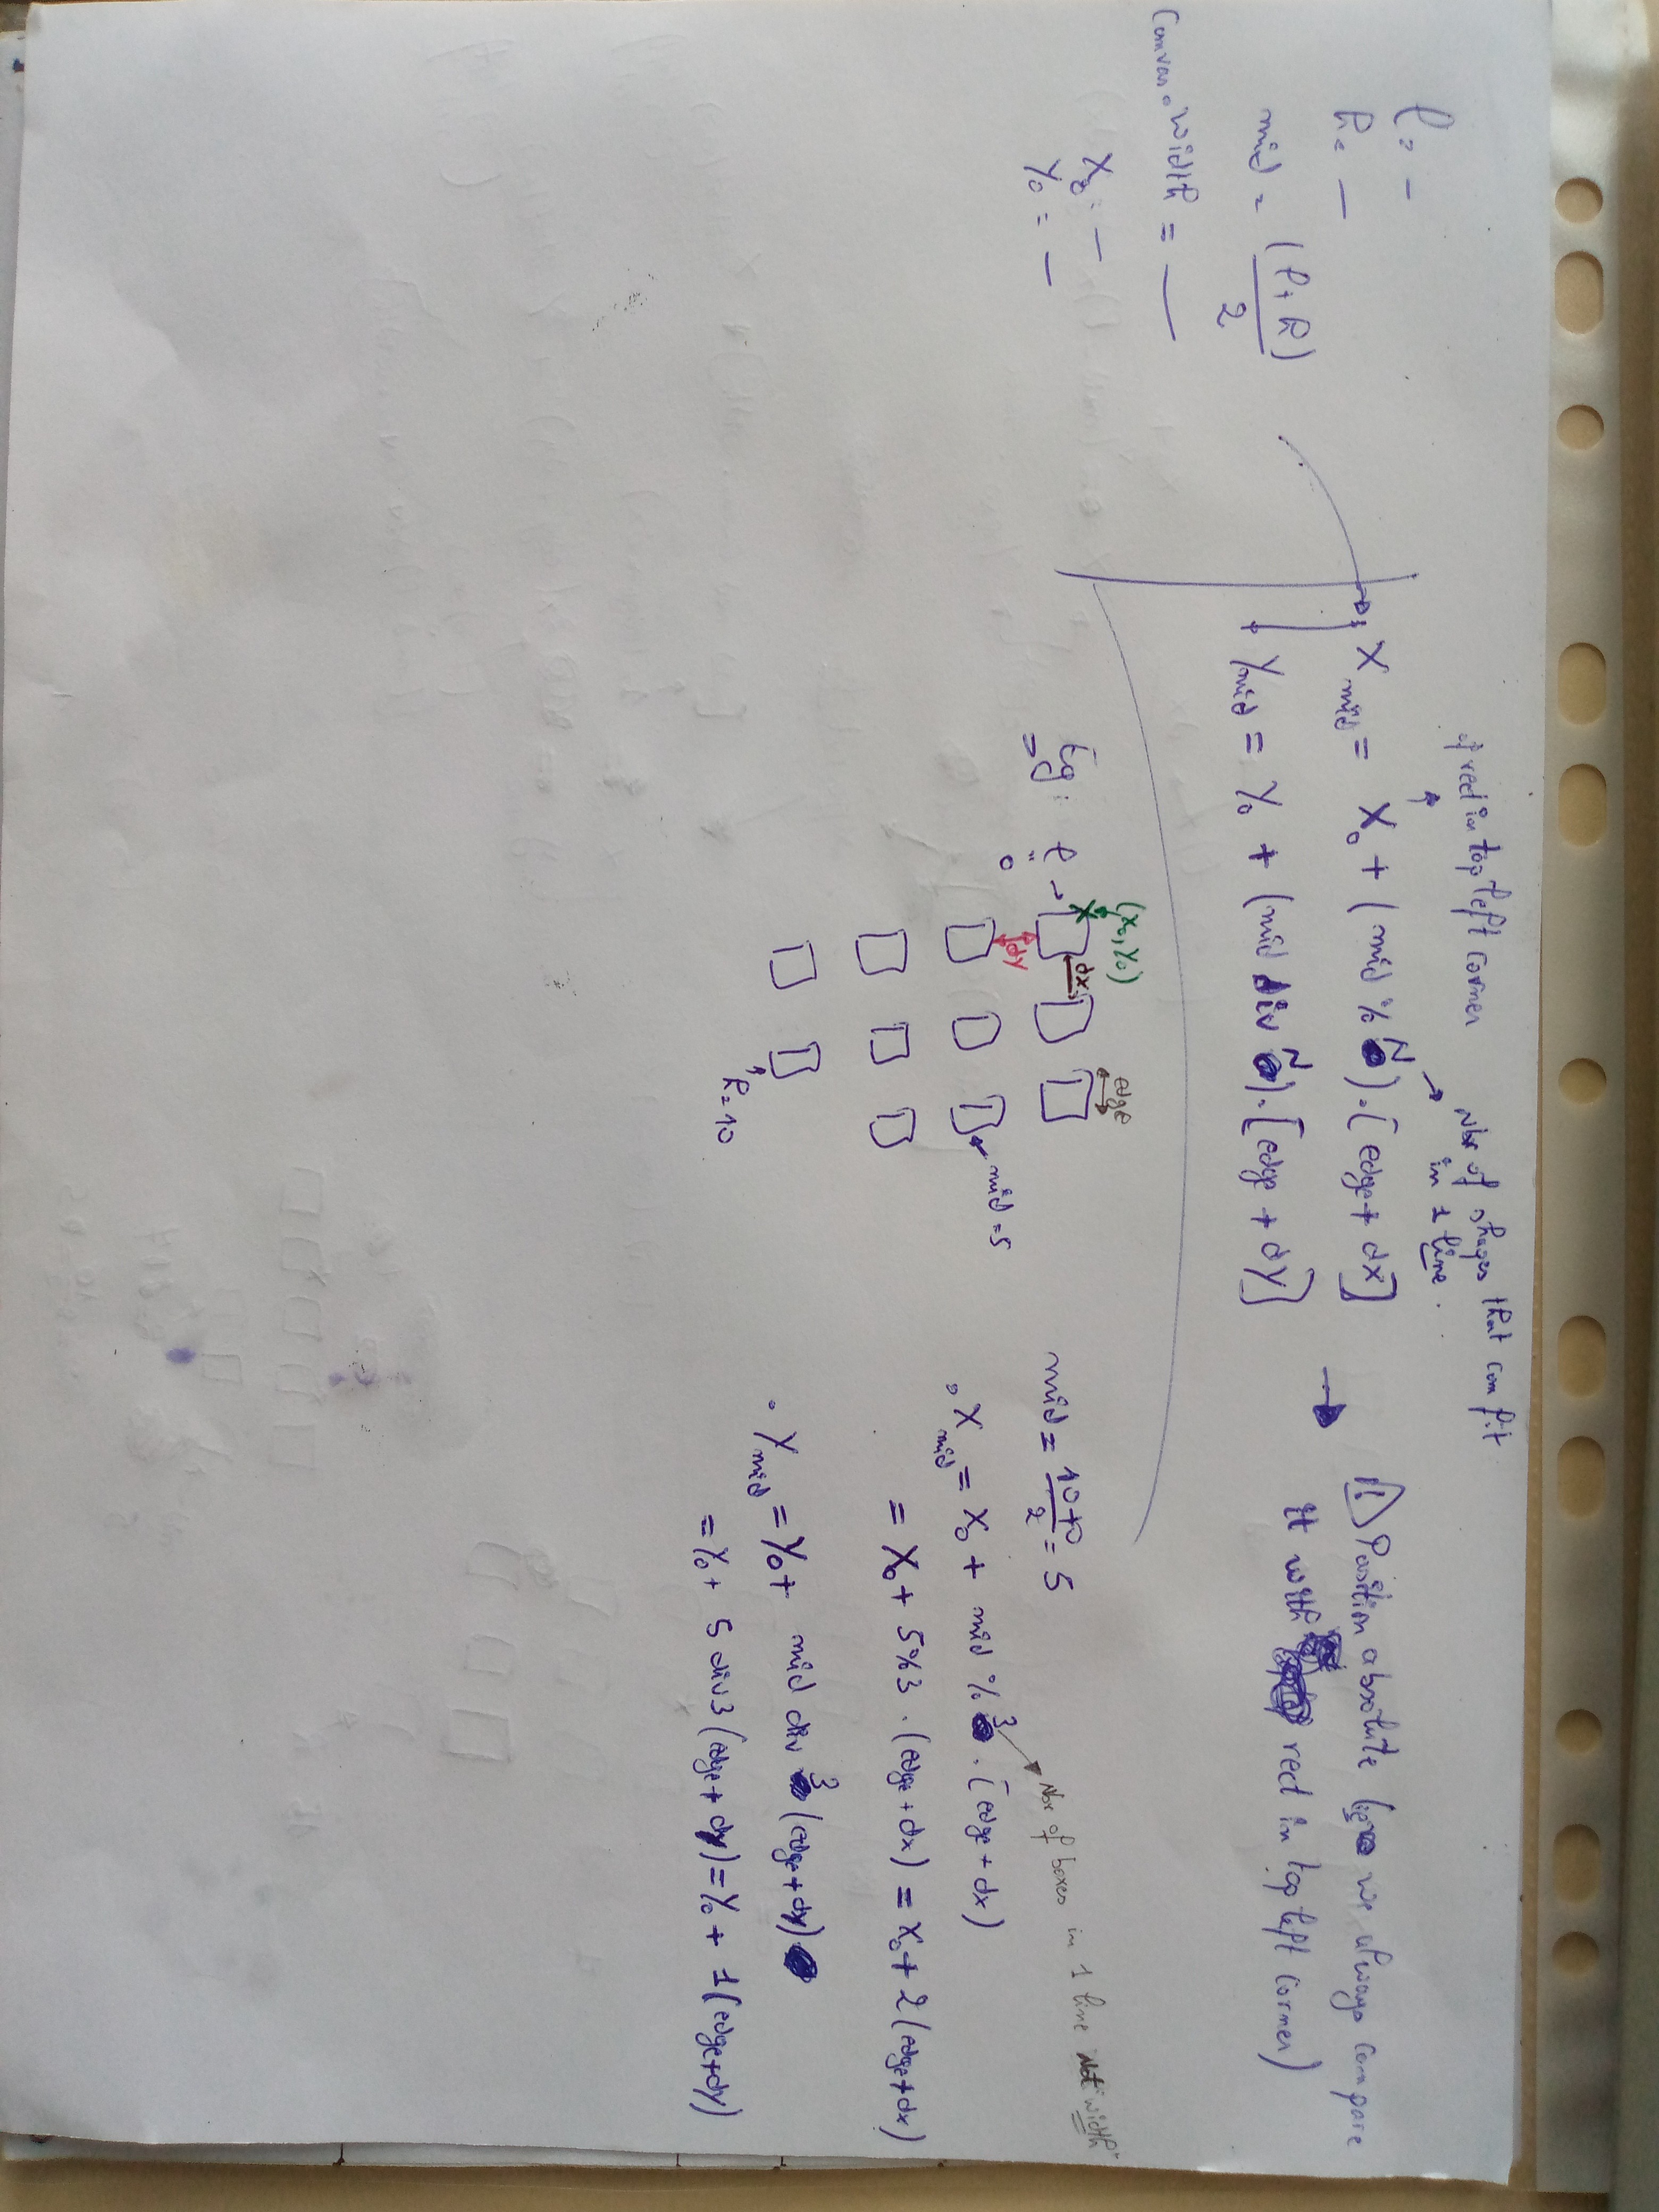 l = —
h = —
mid = (l + h) / 2
Canvas.width = —
X₀ = —
Y₀ = —
of rect in top left corner
Nbr of shapes that can fit
in 1 line.
X mid = X₀ + (mid % N) . [edge + dx]
Y mid = Y₀ + (mid div N) . [edge + dy]
! Position absolute ( we always compare
it with rect in top left corner)
Eg:
(X₀, Y₀)
edge
l
=
0
dx
dy
mid = 5
h = 10
mid = 10+0 / 2 = 5
Nbr of boxes in 1 line Not width
. X mid = X₀ + mid % 3 . (edge + dx)
= X₀ + 5%3 . (edge + dx) = X₀ + 2 (edge + dx)
. Y mid = Y₀ + mid div 3 (edge + dy)
= Y₀ + 5 div 3 (edge + dy) = Y₀ + 1 (edge + dy)